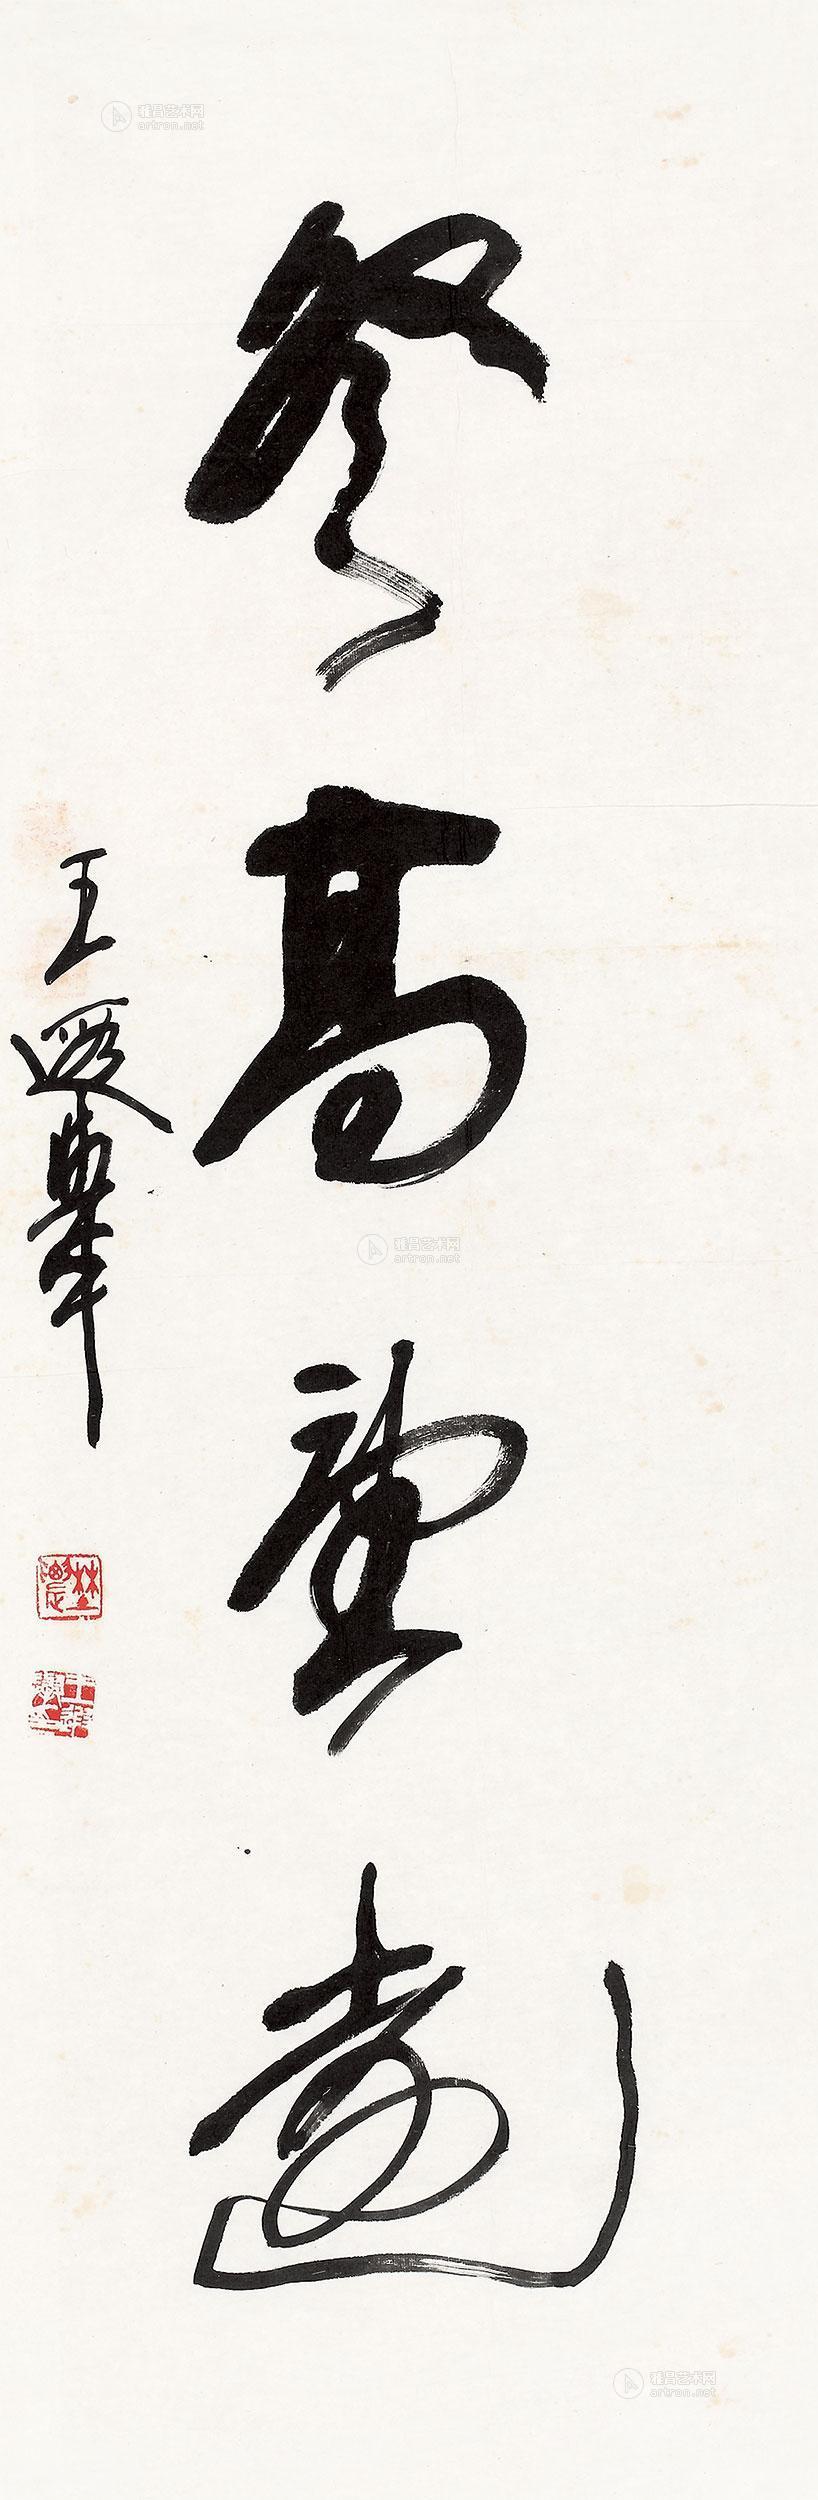 登高望远
王遐举
雅昌艺术网
artron.net
雅昌艺术网
artron.net
雅昌艺术网
artron.net